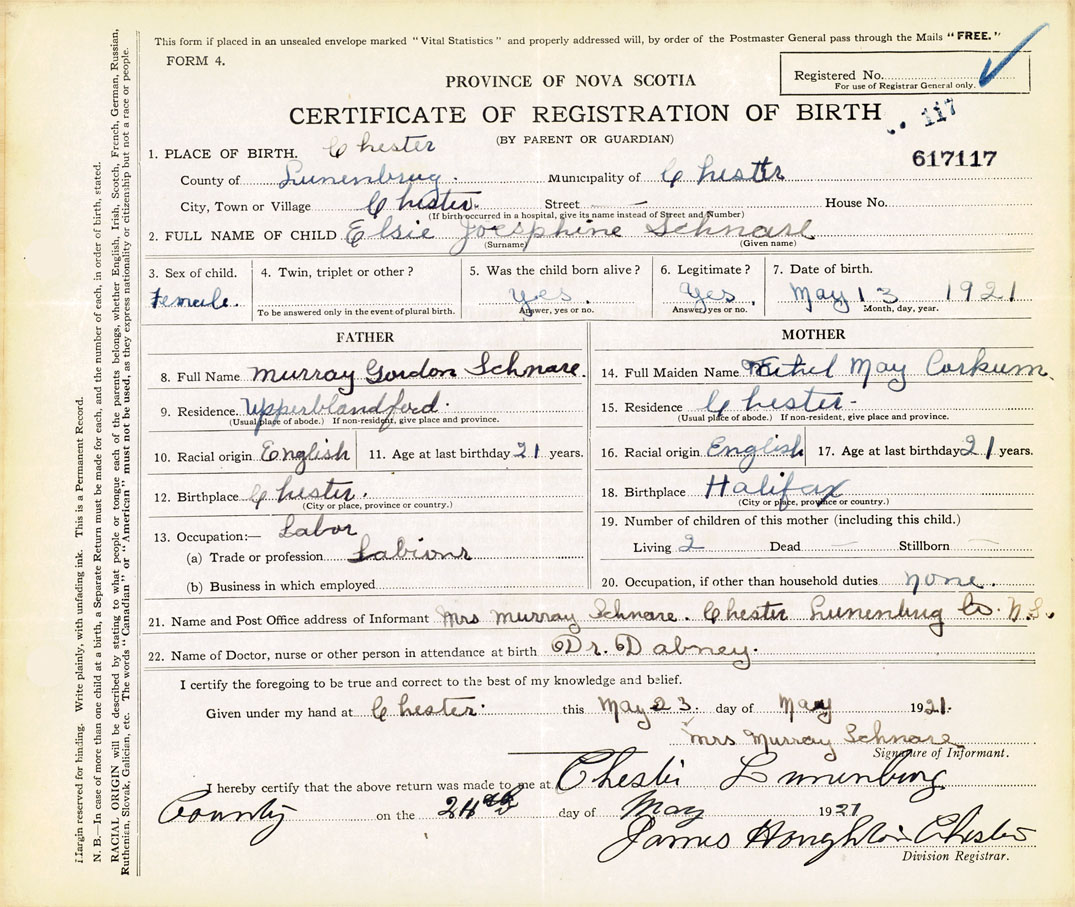 This form if placed in an unsealed envelope marked "Vital Statistics" and properly addressed will, by order of the Postmaster General pass through the Mails "FREE."
FORM 4.
Registered No.
For use of Registrar General only.
PROVINCE OF NOVA SCOTIA
CERTIFICATE OF REGISTRATION OF BIRTH
117
(BY PARENT OR GUARDIAN)
617117
1. PLACE OF BIRTH. Chester
County of Lunenbrug. Municipality of Chester
City, Town or Village Chester. Street — House No.
(If birth occurred in a hospital, give its name instead of Street and Number)
2. FULL NAME OF CHILD Elsie Joesphine Schnare
(Surname) (Given name)
3. Sex of child. 4. Twin, triplet or other? 5. Was the child born alive? 6. Legitimate? 7. Date of birth.
Female. Yes. Yes. May 13 1921
To be answered only in the event of plural birth. Answer, yes or no. Answer, yes or no. Month, day, year.
FATHER
8. Full Name Murray Gordon Schnare.
9. Residence. Upperblandford.
(Usual place of abode.) If non-resident, give place and province.
10. Racial origin English 11. Age at last birthday 21 years.
12. Birthplace Chester.
(City or place, province or country.)
13. Occupation:— Labor
(a) Trade or profession Labiour
(b) Business in which employed
MOTHER
14. Full Maiden Name Ethel May Corkum.
15. Residence Chester-
(Usual place of abode.) If non-resident, give place and province.
16. Racial origin English 17. Age at last birthday 21 years.
18. Birthplace Halifax
(City or place, province or country.)
19. Number of children of this mother (including this child.)
Living 2 Dead — Stillborn —
20. Occupation, if other than household duties none.
21. Name and Post Office address of Informant Mrs Murray Schnare. Chester Lunenbug Co. N.S.
22. Name of Doctor, nurse or other person in attendance at birth Dr. Dabney.
I certify the foregoing to be true and correct to the best of my knowledge and belief.
Given under my hand at Chester. this May 23. day of May 1921.
Mrs Murray Schnare
Signature of Informant.
I hereby certify that the above return was made to me at Chester Lunenburg
County on the 24th day of May 1921
James Houghton Chester
Division Registrar.
Margin reserved for binding. Write plainly, with unfading ink. This is a Permanent Record.
N. B.—In case of more than one child at a birth, a Separate Return must be made for each, and the number of each, in order of birth, stated.
RACIAL ORIGIN will be described by stating to what people or tongue each of the parents belongs, whether English, Irish, Scotch, French, German, Russian,
Ruthenian, Slovak, Galician, etc. The words "Canadian" or "American" must not be used, as they express nationality or citizenship but not a race or people.